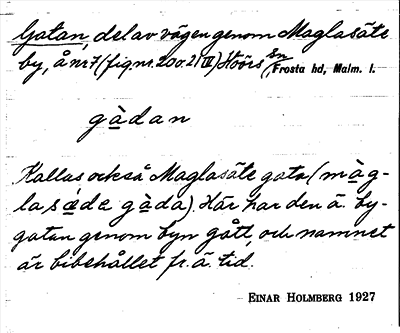 Gatan, del av vägen genom Maglasäte
by, å nr 7 (fig.nr. 20 o. 21 III) Höörs sn
Frosta hd, Malm. l.
gàdan
Kallas också Maglasäte gata (màg-
lasǽde gàda). Här har den ä. by-
gatan genom byn gått, och namnet
är bibehållet fr. ä. tid.
EINAR HOLMBERG 1927